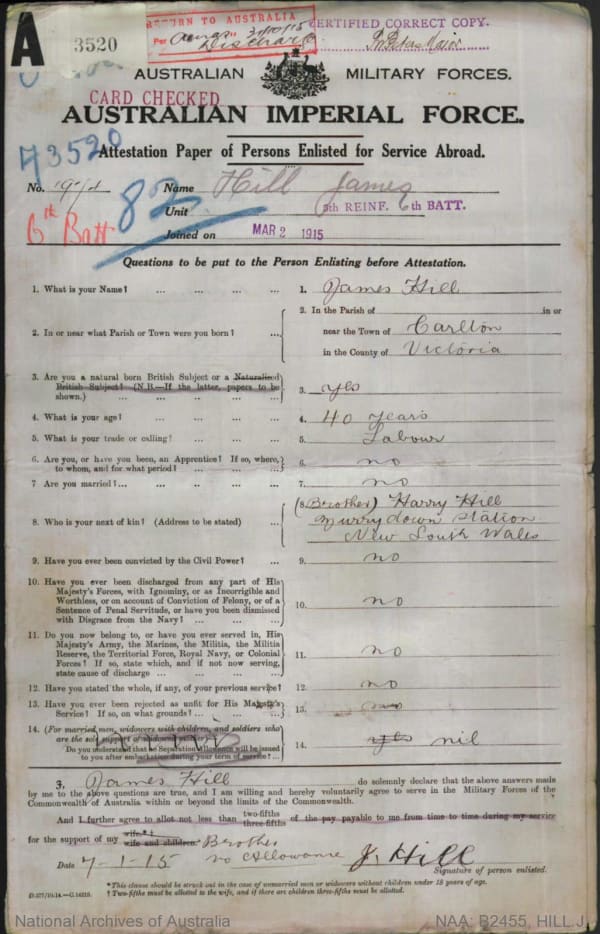 A
3520
RETURN TO AUSTRALIA
Per 31/10/15
Discharge
CERTIFIED CORRECT COPY.
Major
AUSTRALIAN MILITARY FORCES.
CARD CHECKED
AUSTRALIAN IMPERIAL FORCE.
73520
Attestation Paper of Persons Enlisted for Service Abroad.
No. Name Hill James
82
Unit 5th REINF. 6th BATT.
6th Batt
Joined on MAR 2 1915
Questions to be put to the Person Enlisting before Attestation.
1. What is your Name? ... ... ... ... 1. James Hill
2. In or near what Parish or Town were you born? ...
2. In the Parish of in or
near the Town of Carlton
in the County of Victoria
3. Are you a natural born British Subject or a Naturalised
British Subject? (N.B.—If the latter, papers to be
shown.) ... ... ... ... 3. yes
4. What is your age? ... ... ... ... 4. 40 years
5. What is your trade or calling? ... ... ... 5. Labour
6. Are you, or have you been, an Apprentice? If so, where,
to whom, and for what period? ... ... ... 6. no
7 Are you married?... ... ... ... 7. no
8. Who is your next of kin? (Address to be stated) ...
8. (Brother) Harry Hill
Murrydown Station
New South Wales
9. Have you ever been convicted by the Civil Power? ... 9. no
10. Have you ever been discharged from any part of His
Majesty's Forces, with Ignominy, or as Incorrigible and
Worthless, or on account of Conviction of Felony, or of a
Sentence of Penal Servitude, or have you been dismissed
with Disgrace from the Navy? ... ... 10. no
11. Do you now belong to, or have you ever served in, His
Majesty's Army, the Marines, the Militia, the Militia
Reserve, the Territorial Force, Royal Navy, or Colonial
Forces? If so, state which, and if not now serving,
state cause of discharge ... ... ... 11. no
12. Have you stated the whole, if any, of your previous service? 12. no
13. Have you ever been rejected as unfit for His Majesty's
Service? If so, on what grounds? ... ... 13. no
14. (For married men, widowers with children, and soldiers who
are the sole support of widowed mother)
Do you understand that no Separation Allowance will be issued
to you after embarkation during your term of service? ... 14. yes nil
I, James Hill do solemnly declare that the above answers made
by me to the above questions are true, and I am willing and hereby voluntarily agree to serve in the Military Forces of the
Commonwealth of Australia within or beyond the limits of the Commonwealth.
And I further agree to allot not less than two-fifths three-fifths of the pay payable to me from time to time during my service
for the support of my wife*† wife and children Brother
Date 7-1-15 no Allowance J. Hill
Signature of person enlisted.
*This clause should be struck out in the case of unmarried men or widowers without children under 18 years of age.
† Two-fifths must be allotted to the wife, and if there are children three-fifths must be allotted.
D.377/10.14.—C.14213.
National Archives of Australia NAA: B2455, HILL J